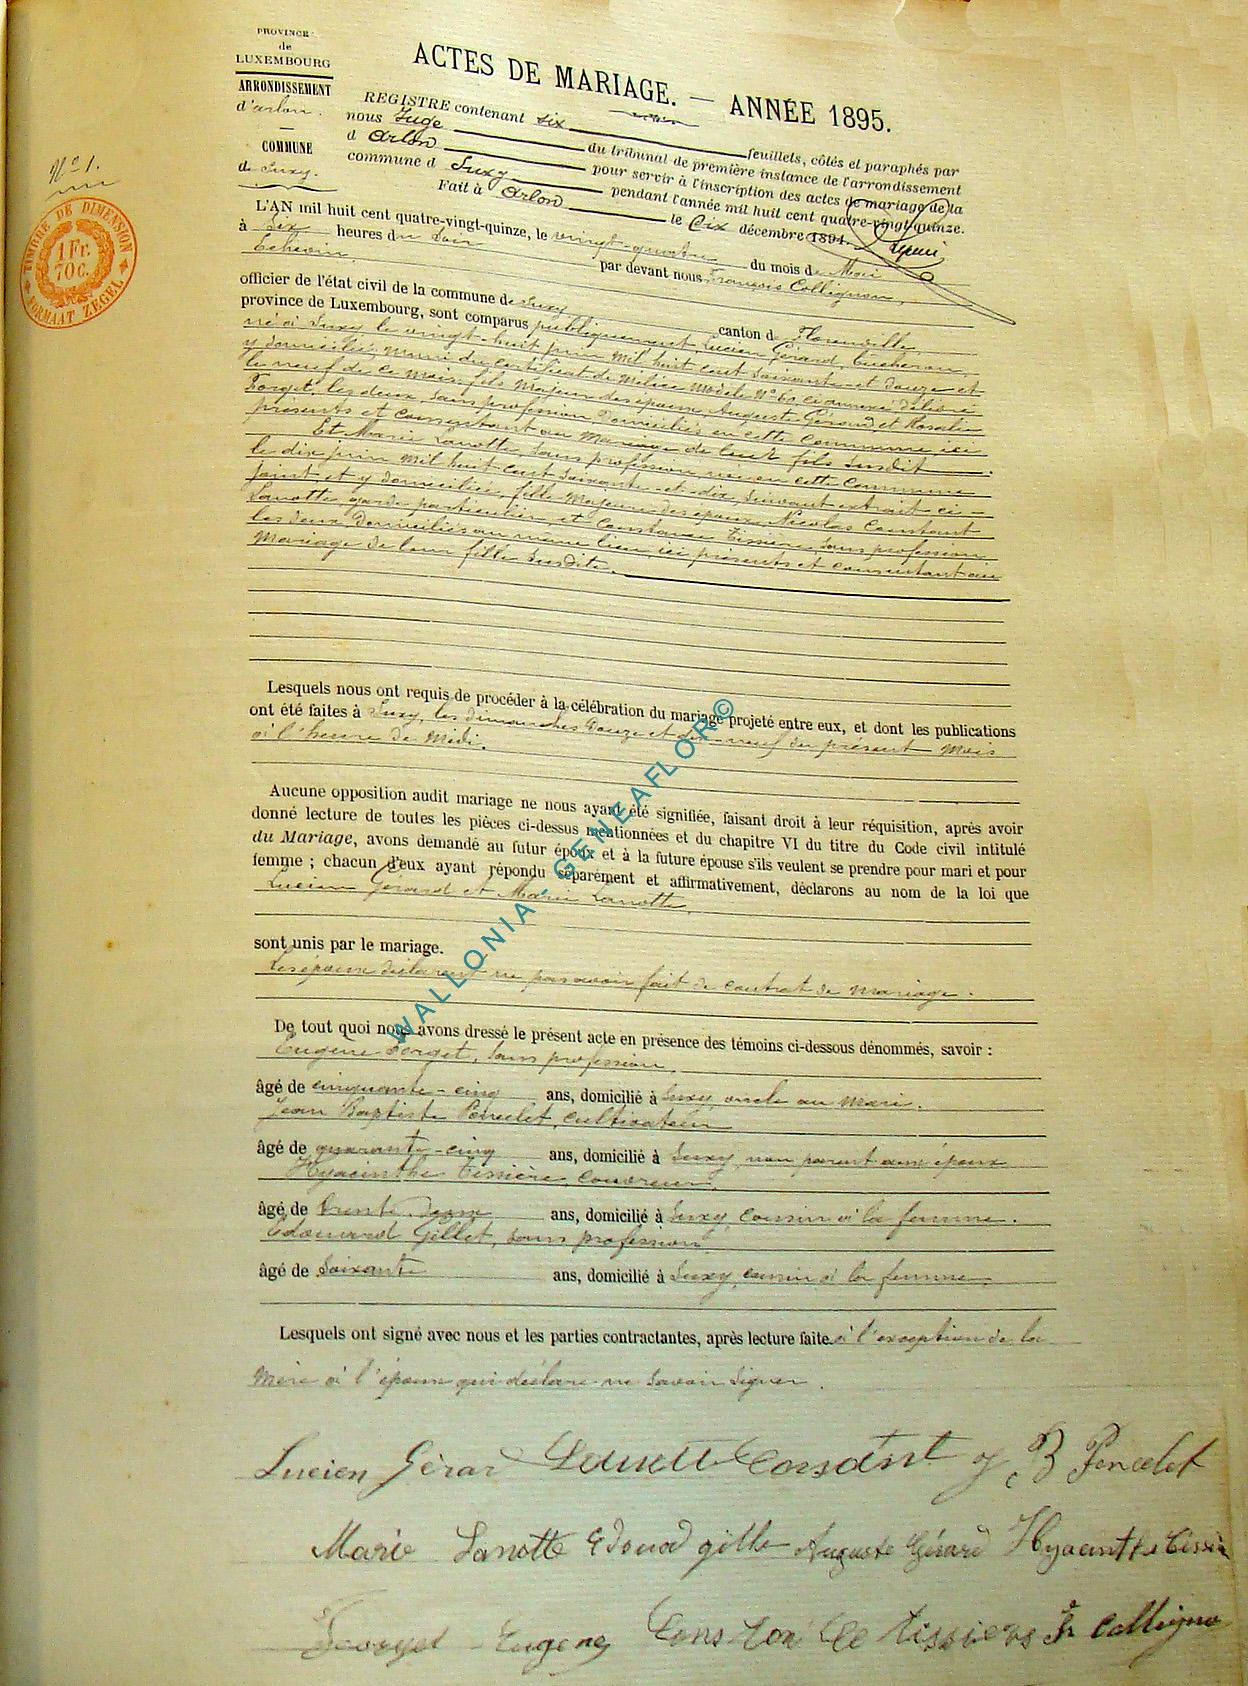 PROVINCE
de
LUXEMBOURG
ARRONDISSEMENT
d'arlon.
COMMUNE
de Suxy.
N° 1.
TIMBRE DE DIMENSION
1 Fr.
70 C.
FORMAAT ZEGEL
ACTES DE MARIAGE. — ANNÉE 1895.
REGISTRE contenant six feuillets, côtés et paraphés par
nous Juge du tribunal de première instance de l'arrondissement
d Arlon pour servir à l'inscription des actes de mariage de la
commune d Suxy pendant l'année mil huit cent quatre-vingt-quinze.
Fait à Arlon le Six décembre 1894.
L'AN mil huit cent quatre-vingt-quinze, le vingt-quatre du mois de Mai
à Six heures du Soir par devant nous François Collignon,
Echevin
officier de l'état civil de la commune de Suxy canton de Florenville,
province de Luxembourg, sont comparus publiquement, Lucien Gérard, bucheron,
né à Suxy le vingt-huit juin mil huit cent soixante-et-douze et
y domicilié, muni du certificat de milice modèle N° 60 ci annexé délivré
le neuf de ce mois, fils majeur des époux Auguste Gérard et Rosalie
Forget, les deux sans profession domiciliés en cette commune, ici
présents et consentant au mariage de leur fils susdit.
Et Marie Lanotte, sans profession née en cette commune
le dix juin mil huit cent soixante-et-dix, suivant extrait ci-
joint, et y domiciliée, fille majeure des époux Nicolas Constant
Lanotte, garde particulier, et Constance Tissière, sans profession
les deux domiciliés au même lieu, ici présents et consentant au
mariage de leur fille susdite.
Lesquels nous ont requis de procéder à la célébration du mariage projeté entre eux, et dont les publications
ont été faites à Suxy, les dimanches Douze et dix-neuf du présent mois
à l'heure de Midi.
Aucune opposition audit mariage ne nous ayant été signifiée, faisant droit à leur réquisition, après avoir
donné lecture de toutes les pièces ci-dessus mentionnées et du chapitre VI du titre du Code civil intitulé
du Mariage, avons demandé au futur époux et à la future épouse s'ils veulent se prendre pour mari et pour
femme ; chacun d'eux ayant répondu séparément et affirmativement, déclarons au nom de la loi que
Lucien Gérard et Marie Lanotte,
sont unis par le mariage.
Les époux déclarent ne pas avoir fait de contrat de mariage.
De tout quoi nous avons dressé le présent acte en présence des témoins ci-dessous dénommés, savoir :
Eugène Forget, sans profession,
âgé de cinquante-cinq ans, domicilié à Suxy, oncle au mari.
Jean Baptiste Poncelet, cultivateur
âgé de quarante-cinq ans, domicilié à Suxy, non parent aux époux
Hyacinthe Tissière, couvreur,
âgé de trente-deux ans, domicilié à Suxy, cousin à la femme.
Edouard Gillet, sans profession,
âgé de Soixante ans, domicilié à Suxy, cousin à la femme,
Lesquels ont signé avec nous et les parties contractantes, après lecture faite à l'exception de la
Mère à l'époux qui déclare ne savoir signer.
Lucien Gérard Lanotte Constant J B Poncelet
Marie Lanotte Edouad gille Auguste Gérard Hyacinthe Tissière
Forget Eugene Constance tissiers Fr Collignon
WALLONIA - GENEAFLOR ©